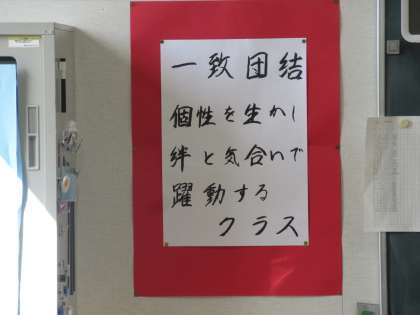 一致団結
個性を生かし
絆と気合いで
躍動する
クラス